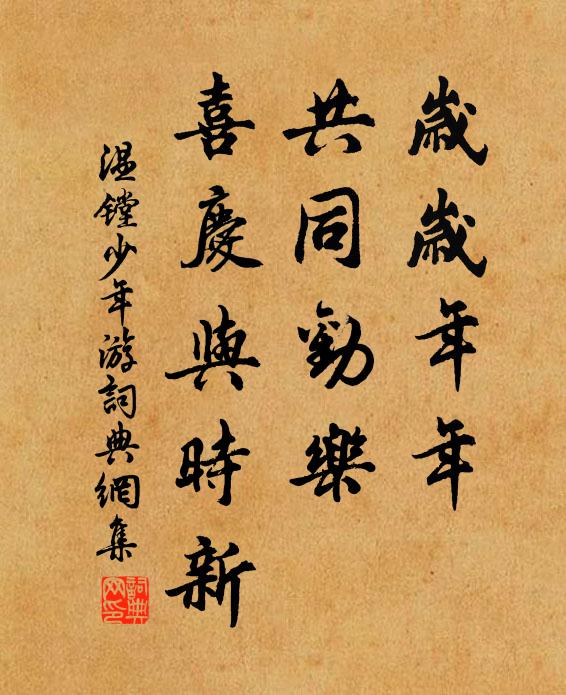 歲歲年年
共同歡樂
喜慶與時新
溫鏜少年游詞典網集
詞典
网印